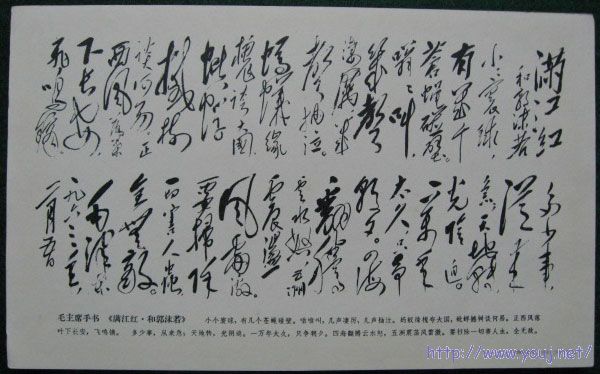 满江红
和郭沫若
小小寰球，
有几个
苍蝇碰壁。
嗡嗡叫，
几声
凄厉，几
声抽泣。
蚂蚁缘
槐夸大国，
蚍蜉
撼树
谈何易。正
西风落叶
下长安，
飞鸣镝。
多少事，
从来
急；天地转，
光阴迫。
一万年
太久，只争
朝夕。四海
翻腾
云水怒，五洲
震荡
风雷激。
要扫除
一切害人虫，
全无敌。
毛泽东
一九六三年
二月五日
毛主席手书 《满江红·和郭沫若》 小小寰球，有几个苍蝇碰壁。嗡嗡叫，几声凄厉，几声抽泣。蚂蚁缘槐夸大国，蚍蜉撼树谈何易。正西风落
叶下长安，飞鸣镝。 多少事，从来急；天地转，光阴迫。一万年太久，只争朝夕。四海翻腾云水怒，五洲震荡风雷激。要扫除一切害人虫，全无敌。
http://www.youj.net/